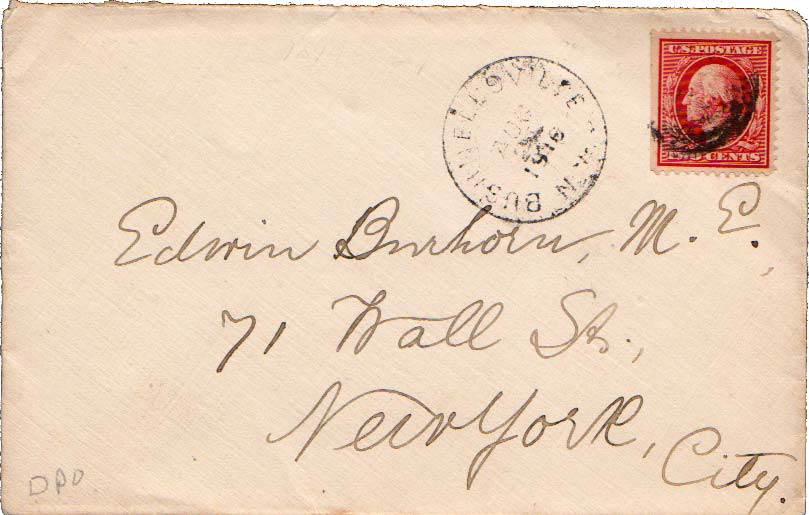 U.S. POSTAGE
TWO CENTS
BUSHNELLSVILLE N.Y.
AUG
1916
Edwin Burhorn, M. E.,
71 Wall St.,
New York, City.
DPO